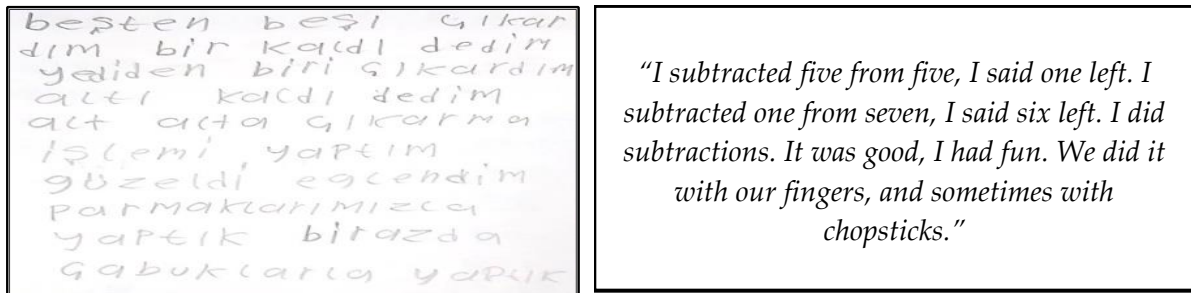 beşten beşi çıkar
dım bir kaldı dedim
yediden biri çıkardım
altı kaldı dedim
alt alta çıkarma
işlemi yaptım
güzeldi eğlendim
parmaklarımızla
yaptık birazda
çabuklarla yaptık
“I subtracted five from five, I said one left. I
subtracted one from seven, I said six left. I did
subtractions. It was good, I had fun. We did it
with our fingers, and sometimes with
chopsticks.”